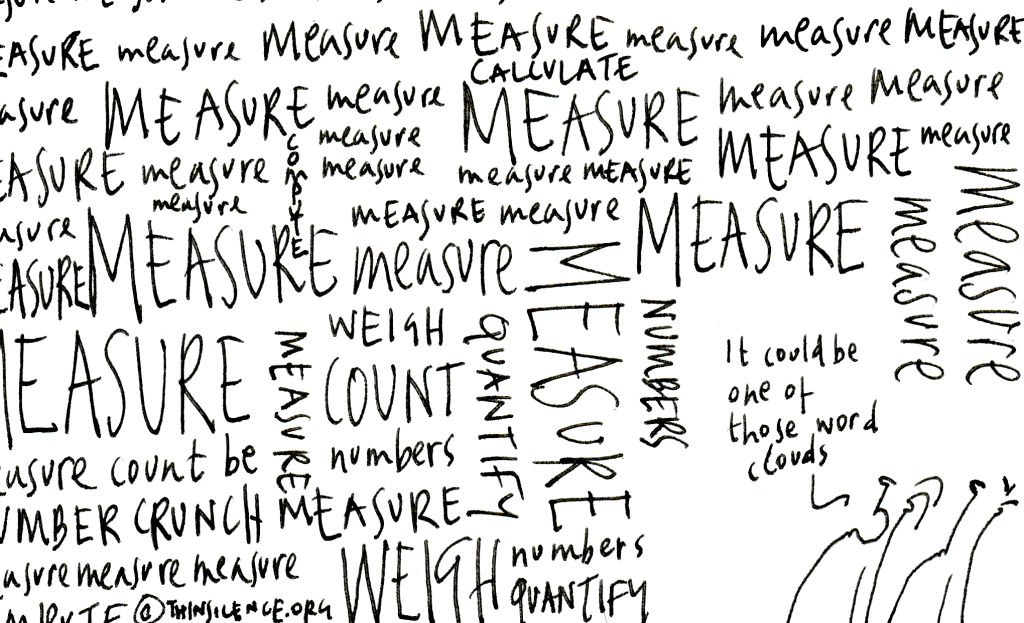 MEASURE measure Measure MEASURE measure measure MEASURE
CALCULATE
measure MEASURE measure MEASURE measure Measure
measure MEASURE measure
MEASURE measure measure measure MEASURE
COMPUTE
measure
measure MEASURE measure MEASURE measure MEASURE measure measure
MEASURE
MEASURE
NUMBERS
MEASURE MEASURE WEIGH QUANTIFY
COUNT
It could be
one of
those word
clouds
measure count be numbers
NUMBER CRUNCH MEASURE
measure measure measure WEIGH numbers
COMPUTE @THINSILENCE.ORG QUANTIFY